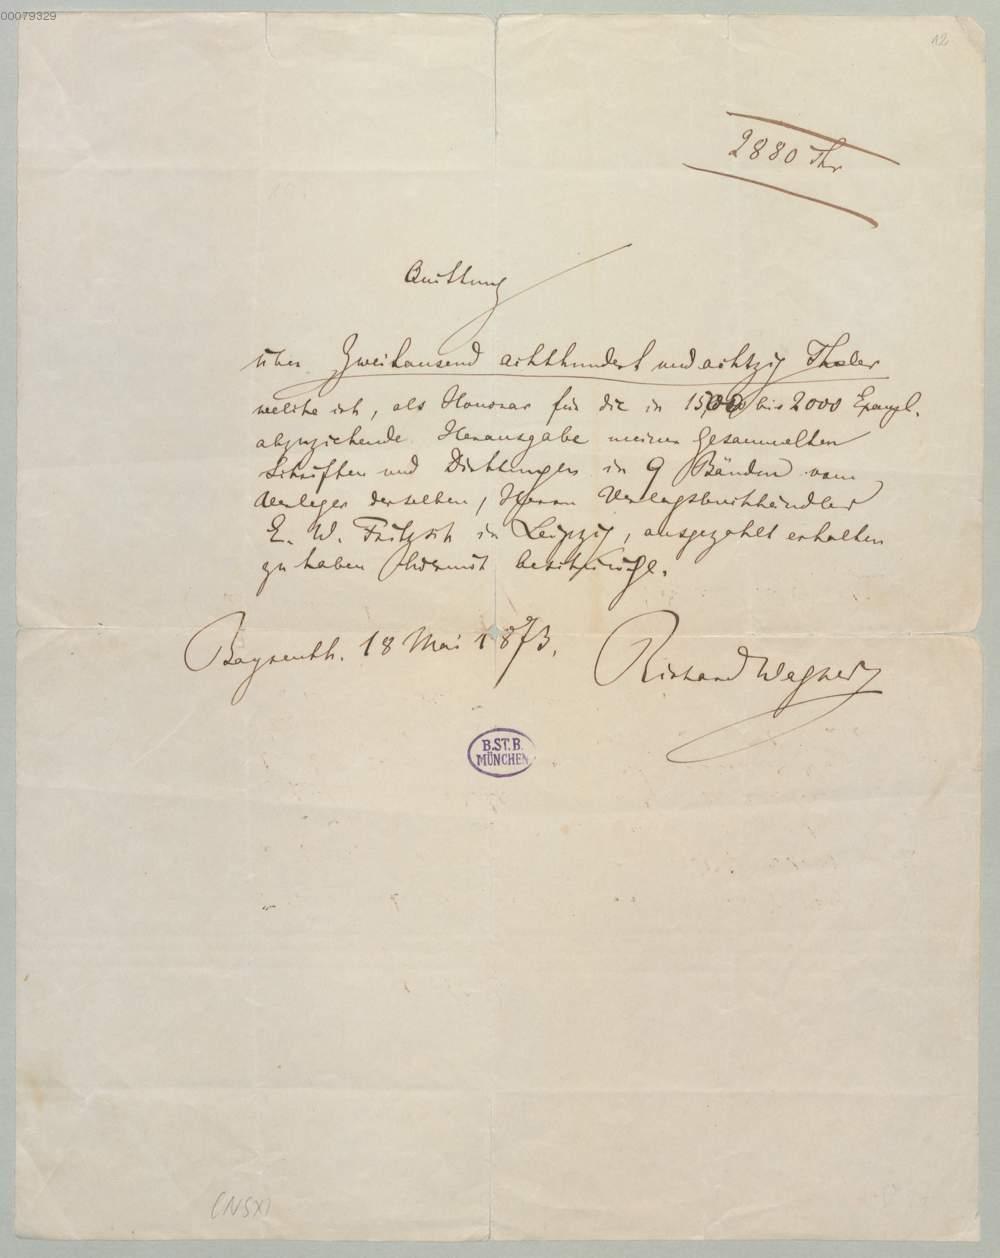 00079329
12
2880 Thr
Quittung
über Zweitausend achthundert und achtzig Thaler
welche ich, als Honorar für die in 1500 bis 2000 Exempl.
abzuziehende Herausgabe meiner gesammelten
Schriften und Dichtungen in 9 Bänden vom
Verleger derselben, Herrn Verlagsbuchhändler
E. W. Fritzsch in Leipzig, ausgezahlt erhalten
zu haben hiermit bescheinige.
Bayreuth. 18 Mai 1873.
Richard Wagner
B.ST.B.
MÜNCHEN